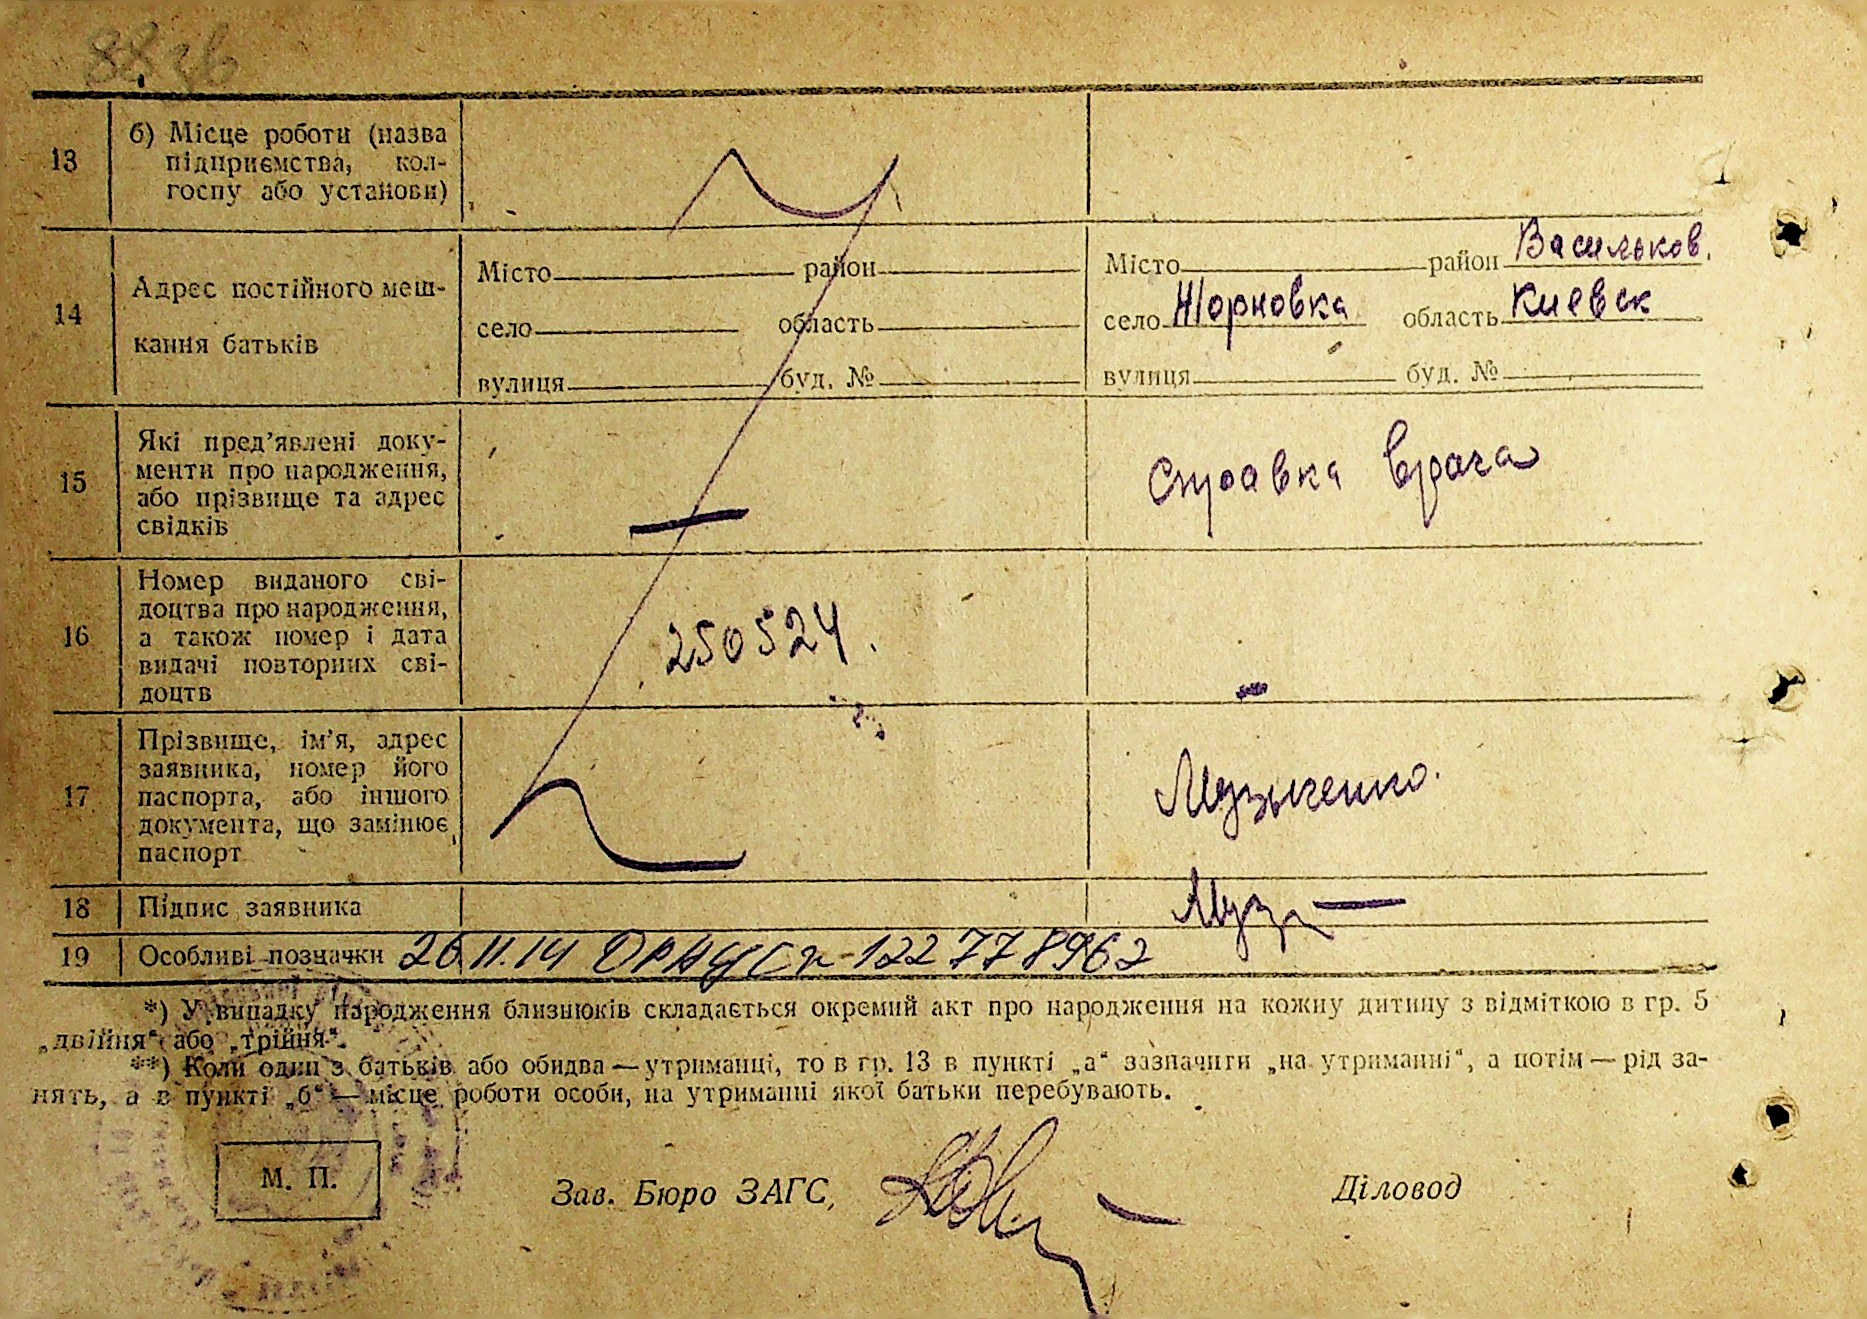 13
б) Місце роботи (назва
підприємства, кол-
госпу або установи)
14
Адрес постійного меш-
кання батьків
Місто район
село область
вулиця буд. №
Місто район Васильков.
село Жорновка область Киевск
вулиця буд. №
15
Які пред’явлені доку-
менти про народження,
або прізвище та адрес
свідків
Справка врача
16
Номер виданого сві-
доцтва про народження,
а також номер і дата
видачі повторних сві-
доцтв
250524.
17
Прізвище, ім’я, адрес
заявника, номер його
паспорта, або іншого
документа, що замінює
паспорт
Музыченко.
18 Підпис заявника Муз
19 Особливі позначки 26.11.14 ДРАЦС 122778962
*) У випадку народження близнюків складається окремий акт про народження на кожну дитину з відміткою в гр. 5
„двійня“ або „трійня“.
**) Коли один з батьків або обидва — утриманці, то в гр. 13 в пункті „а“ зазначити „на утриманні“, а потім — рід за-
нять, а в пункті „б“ — місце роботи особи, на утриманні якої батьки перебувають.
М. П.
Зав. Бюро ЗАГС,
Діловод